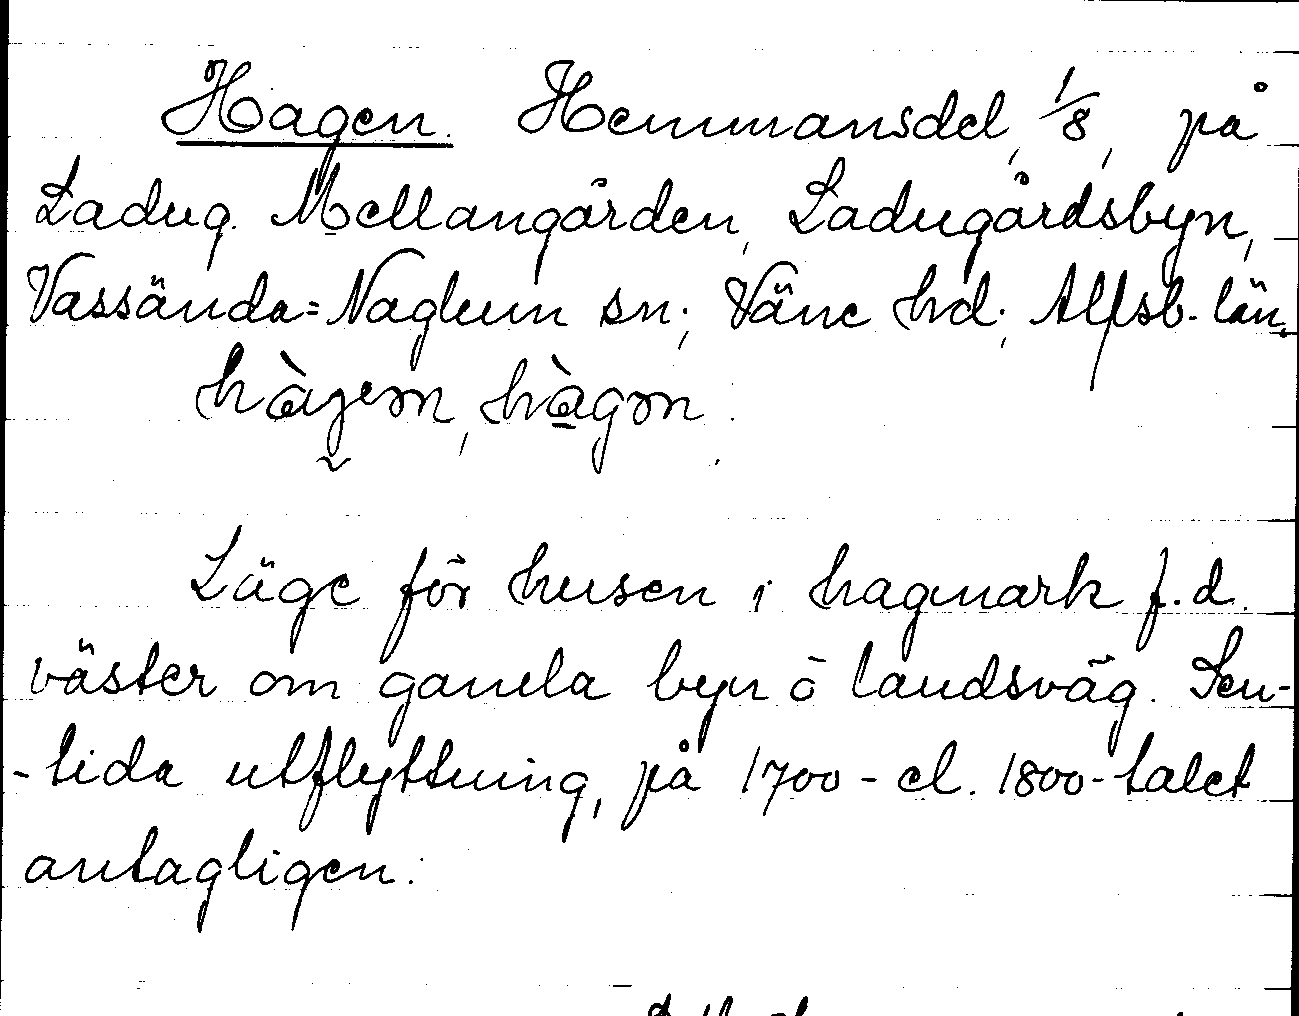 Hagen. Hemmansdel, 1/8, på
Ladug. Mellangården, Ladugårdsbyn,
Vassända=Naglum sn; Väne hd; Älfsb. län.
hàgem, hàgm.
Läge för husen i hagmark f.d.
väster om gamla byn o landsväg. Sen-
-tida utflyttning, på 1700- el. 1800-talet
antagligen.